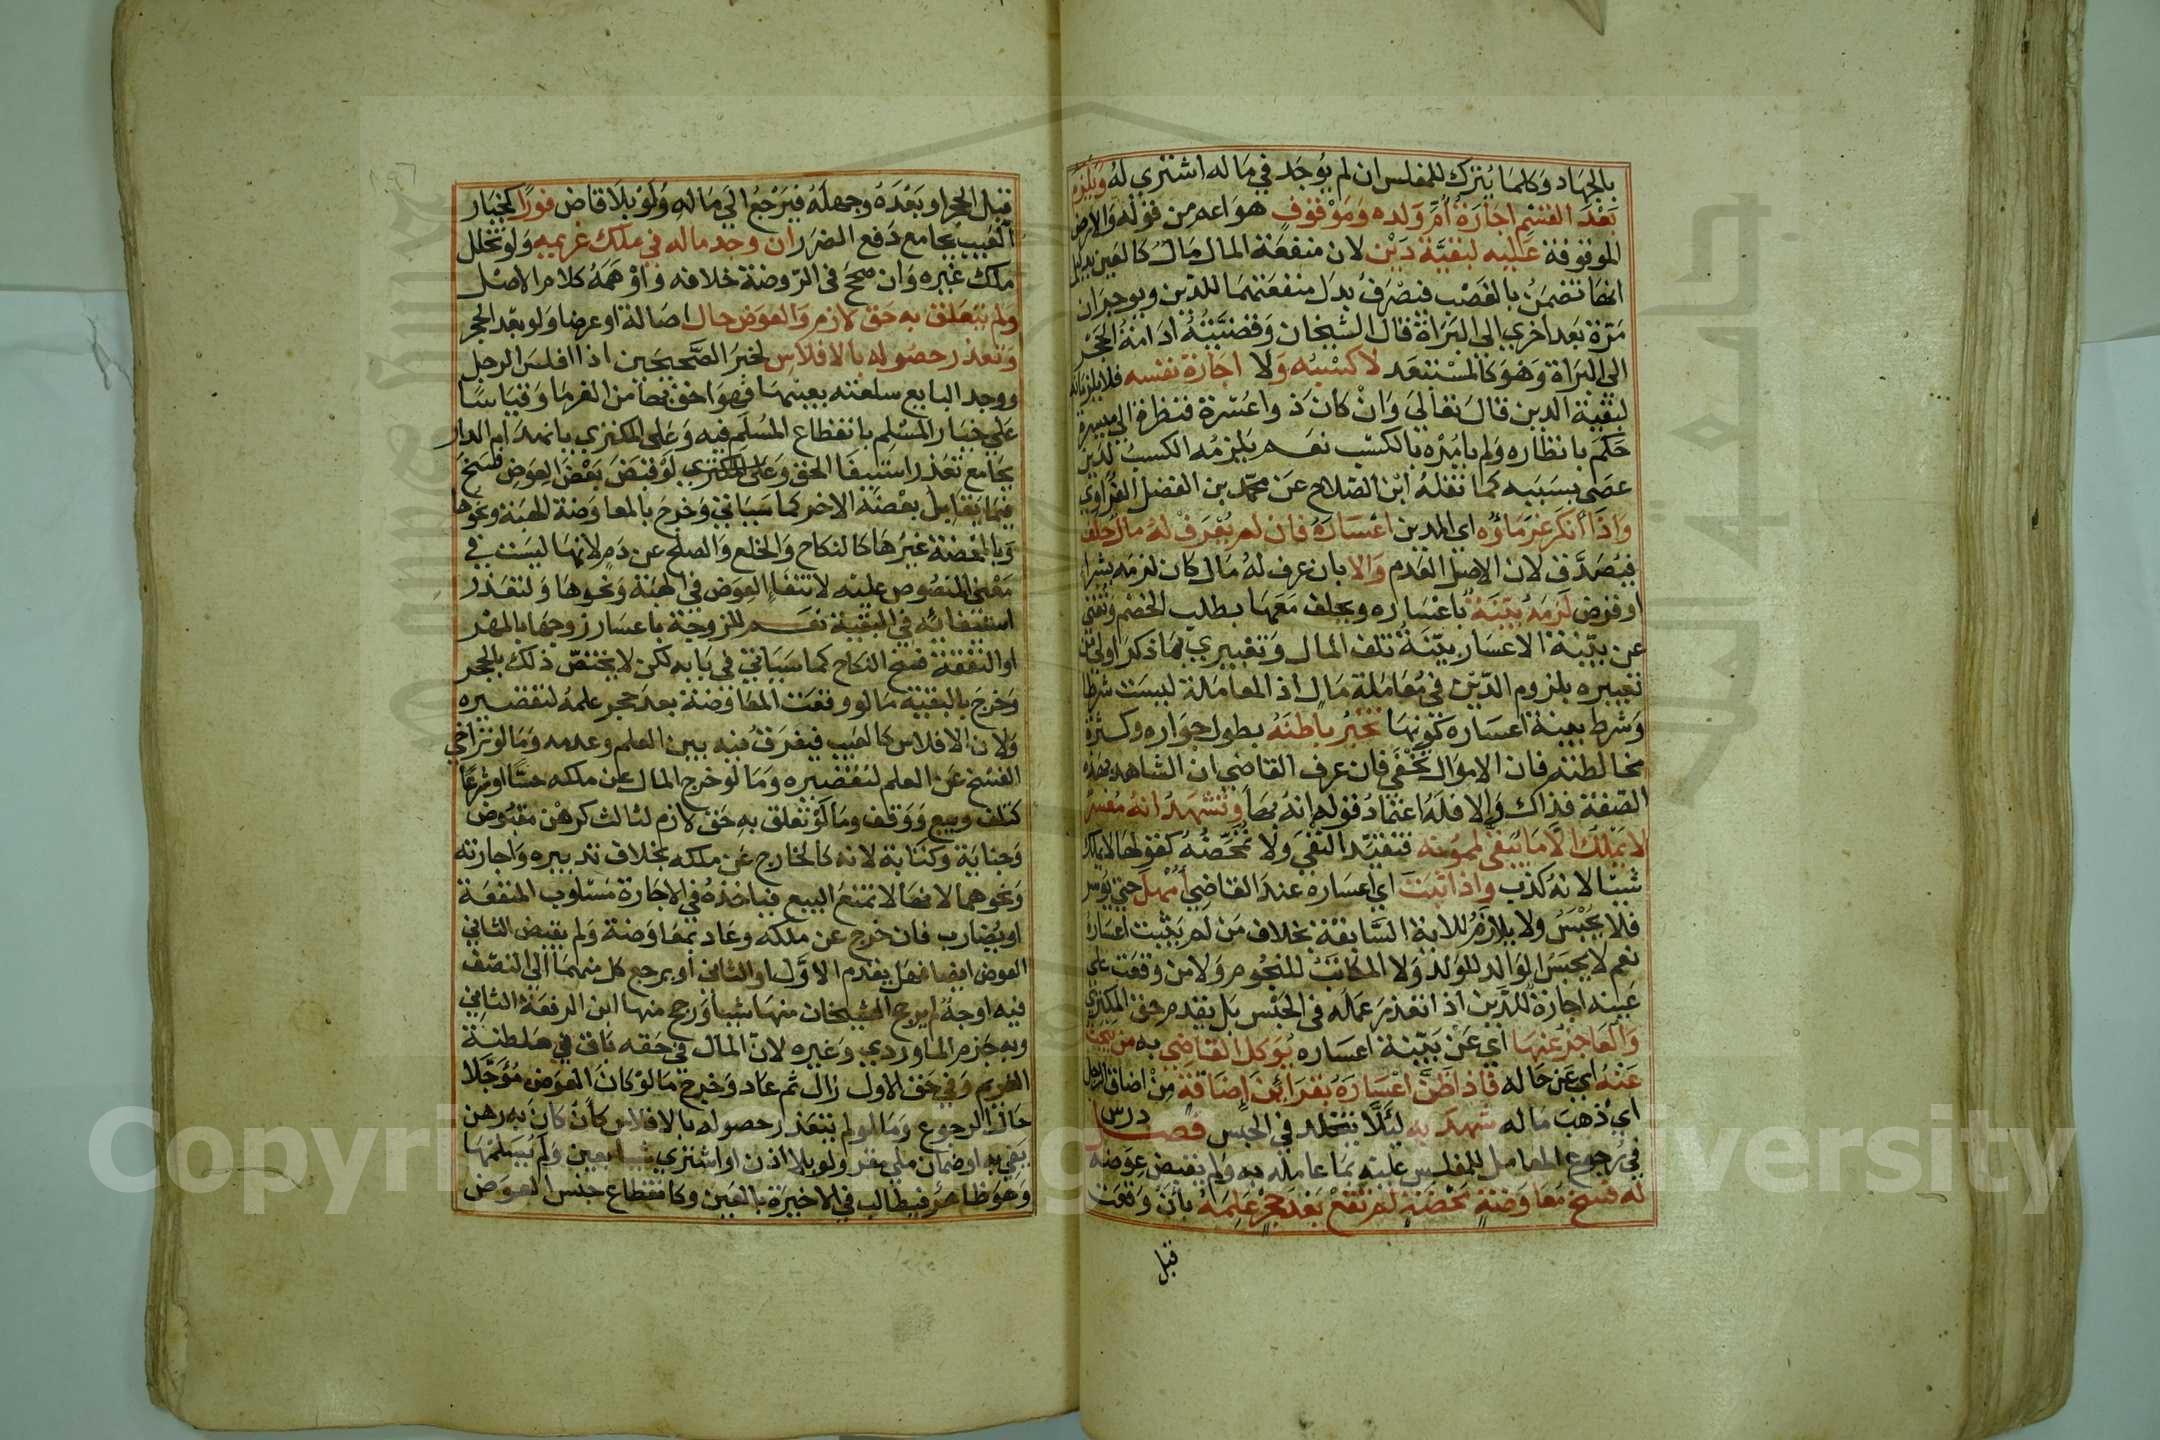 بالجهاد وكلما يترك للمفلس ان لم يوجد في ماله اشتري له ويلزمه
بَعْدَ القسْمِ اجَارَةُ أُمِّ وَلده وَمَوْقوفٍ هو اعم من قوله والارض
الموقوفة عَليْه لبَقيَّة دَيْن لان منفعَة المال مَالٌ كالعين بدليل
انها تضمَنُ بالغَصْب فيصْرَفُ بدَل منفعَتهما للدّين ويوجران
مَرّة بَعد اخري الى البَرَاة قالَ الشيخان وَقضيَّتهُ ادَامَةُ الحَجْر
الي البَرَاة وَهُوَ كالمسْتبْعَد لاَ كسْبُه وَلاَ اجَارَة نفسه فلا يلزمانه
لبَقية الدين قالَ تعَاليَ وَانْ كانَ ذواعُسْرَة فنَظرَة الي ميسرة
حَكم بانظاره وَلم يامُرْه بالكسْب نعَم يلزمُه الكسبُ لدَين
عصَي بسَببه كما نقلهُ ابْن الصّلاح عَن محمّد بن الفضل الفراوي
وَاذا انكرَ غرَمَاؤه اي المدين اعْسَارَهُ فان لم يُعْرَفْ لهُ مال حلف
فيُصَدَّق لان الاصْل العَدم وَالا بان عرف لهُ مَال كان لزمَه بشرا
او قرض لزمَهُ بيّنَة باعْسَاره ويحلف مَعَها بطلب الخصْم وتغني
عن بيّنة الاعسَار بيّنَةُ تلف المال وَتعْبيري بمَا ذكرَ اولي من
تعبيره بلزوم الدّين في مُعَامَلة مَال اذ المعامَلة ليسَت شرطا
وَشرط بينة اعسَاره كونهَا تخْبُر باطنَهُ بطول جوَاره وكثرة
مخالطته فان الاموَال تخْفَي فان عرف القاضي ان الشاهد بهذه
الصّفة فذاك وَالا فلهُ اعتمادُ قوله انهُ بهَا وتشْهَدُ انهُ مُعْسرٌ
لا يَمْلكُ الاَّ مَا يُبْقي لممُونه فتقيّد النفيَ وَلا تمحِّضُهُ كقولها لا يملك
شيئا لانهُ كذب واذا ثبتَ اي اعسَاره عندَ القاضِي أُمْهلَ حتي يوسر
فلا يُحْبَسُ ولا يلازَمُ للاية السَّابقة بخلاف مَن لم يَثبت اعسَاره
نعم لا يحبسَ الوَالد للوَلد وَلا المكاتبُ للنجُوم وَلا من وقعَت علي
عَينه اجارَة للدّين اذا تعذرَ عَمَله في الحَبْس بَل يقدم حق المكتري
وَالعَاجز عَنها اي عَنْ بيّنة اعسَاره يُوَكل القاضي به من يبحث
عَنهُ اي عَن حَاله فاذا ظنّ اعْسَارَهُ بقرَائنَ اضَاقة مِنْ اضاق الرجل
ايْ ذهَبَ مَاله شهدَ به ليئلا يتخلد في الحبس فصـل درس
في رجوع المعامل للمفلس عليه بمَا عامله به وَلم يقبض عِوَضه
له فسخ مُعَاوَضة مَحْضَةٍ لم تقعْ بَعْدَ حَجْرٍ عَلِمَهُ بانَ وَقعَت
قبل
قبْل الحَجْر او بَعْدَهُ وجَهلَهُ فيَرْجعُ الي مَاله وَلَوْ بلاَ قاض فورًا كخيَار
العَيب بجَامع دَفع الضرَر ان وجد ماله في ملك غريمه وَلو تخلل
ملك غيْره وَان صَحَّحَ في الرّوضة خلافه وَاوْهَمَهُ كلام الاصْل
وَلم يتعَلق به حَق لازم وَالعوَض حال اصَالة او عرضا ولو بعْد الحجر
وَتعَذر حصُوله بالافلاس لخبرَ الصَّحيحَين اذا افلسَ الرجل
ووجد البايع سلعته بعينها فهوَ احق بهَا منَ الغرَمَا وَقيَاسًا
عَلي خيَار المسْلم بانقطاع المُسْلم فيه وَعَلى المكتري بانهدَام الدار
بجَامع تعَذر استيفَا الحق وَعلى المكتري لوْ قبَضَ بَعْضَ العِوَضِ فسَخَ
فيمَا يقابل بعْضَهُ الاخر كما سَيَاتي وَخرجَ بالمعَاوَضة الهبَة ونحوها
وَبالمحْضَة غيرُهَا كالنكاح وَالخلع وَالصلح عن دَم لانهَا ليسَت في
مَعْني المنصُوص عليْه لانتفَاء العِوَض في الهبَة وَنحوهَا وَلتعَذر
استيفائه في البقيّة نعَم للزوجَة باعسَار زوجهَا بالمهْر
او النفقة فسْخ النكاح كما سَيَاتي في بَابه لكن لا يختصّ ذلك بالحجر
وَخرجَ بالبقيّة مَا لو وقعَت المعَاوَضة بعدَ حجر علمهُ لتقصيره
وَلان الافلاس كالعَيب فيفرَق فيه بين العلم وعدمه وَمَا لوْ تراخي
الفسْخ عَن العلم لتقصيره وَمَا لو خرجَ المال عن ملكه حسًّا او شرعًا
كتلف وبيع وَوَقف ومَا لوْ تعلق به حَق لازم لثالث كرهْن مقبُوض
وَجناية وكتابة لانه كالخارج عَن ملكه بخلاف تدبيره وَاجارته
وَنحوهما لانهَا لا تمنعُ البيع فياخذهُ في الاجَارة مَسْلوب المنفعَة
او يُضارب فان خرج عن ملكه وعَاد بمعَاوَضة وَلم يقبض الثاني
العوض ايضا فهَل يقدم الاوَّل او الثاني أو يرجع كل منهمَا الي النصف
فيه اوجهٌ لم يرجح الشيخان منهَا شيئا وَرجح منها ابن الرفعَة الثاني
وبه جَزم الماوردي وغيره لانّ المال في حقه باق في سَلطنة
الغريم وَفي حَق الاول زال ثم عَاد وَخرجَ مَا لوْ كانَ العوَض مُؤجَّلا
حَالَ الرجوع وَمَا لو لم يتعَذر حصوله بالافلاس كأنْ كانَ به رهن
يفي به او ضمان ملي مقر ولو بلا اذن او اشتري شيأ بعين وَلم يُسَلمْهَا
وَهوَ ظاهر فيطالب في الاخيرَة بالعَين وكانقطاع جنس العوَض